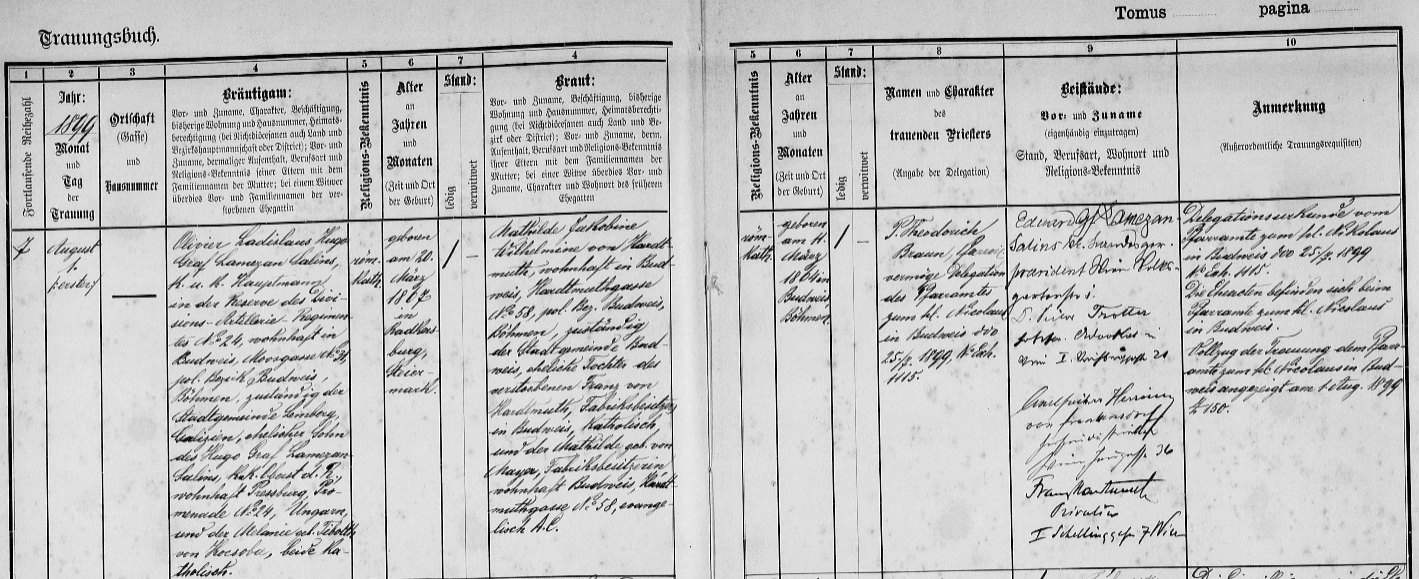 Tomus pagina
Trauungsbuch.
1
2
3
4
5
6
7
4
5
6
7
8
9
10
Fortlaufende Reihezahl
Jahr:
1899
Monat
und
Tag
der
Trauung
Ortschaft
(Gasse)
und
Hausnummer
Bräutigam:
Vor- und Zuname, Charakter, Beschäftigung,
bisherige Wohnung und Hausnummer, Heimats-
berechtigung (bei Nichtdiöcesanen auch Land und
Bezirkshauptmannschaft oder District); Vor- und
Zuname, dermaliger Aufenthalt, Berufsart und
Religions-Bekenntnis seiner Eltern mit dem
Familiennamen der Mutter; bei einem Witwer
überdies Vor- und Familiennamen der ver-
storbenen Ehegattin
Religions-Bekenntnis
Alter
an
Jahren
und
Monaten
(Zeit und Ort
der Geburt)
Stand:
ledig
verwitwet
Braut:
Vor- und Zuname, Beschäftigung, bisherige
Wohnung und Hausnummer, Heimatsberechti-
gung (bei Nichtdiöcesanen auch Land und Be-
zirk oder District); Vor- und Zuname, derm.
Aufenthalt, Berufsart und Religions-Bekenntnis
ihrer Eltern mit dem Familiennamen der
Mutter; bei einer Witwe überdies Vor- und
Zuname, Charakter und Wohnort des früheren
Ehegatten
Religions-Bekenntnis
Alter
an
Jahren
und
Monaten
(Zeit und Ort
der Geburt)
Stand:
ledig
verwitwet
Namen und Charakter
des
trauenden Priesters
(Angabe der Delegation)
Beistände:
Vor- und Zuname
(eigenhändig einzutragen)
Stand, Berufsart, Wohnort und
Religions-Bekenntnis
Anmerkung
(Außerordentliche Trauungsrequisiten)
7
August
1.
/:ersten:/
—
Olivier Ladislaus Hugo
Graf Lamezan Salins,
k. u. k. Hauptmann
in der Reserve des Divi-
sions-Artillerie-Regimen-
tes No. 24, wohnhaft in
Budweis,
pol. Bezirk Budweis,
Böhmen, zuständig der
Stadtgemeinde Lemberg,
Galizien, ehelicher Sohn
des Hugo Graf Lamezan
Salins, k. u. k. Oberst d. R.,
wohnhaft Pressburg, Pro-
menade No. 24, Ungarn,
und der Melanie geb.
von beide ka-
tholisch.
röm.
kath.
geboren
am 20.
März
1867
in
Radkers-
burg,
Steier-
mark.
/ —
Mathilde Jakobine
Wilhelmine von Hardt-
muth, wohnhaft in Bud-
weis, Hardtmuthgasse
No. 58, pol. Bez. Budweis,
Böhmen, zuständig
der Stadtgemeinde Bud-
weis, eheliche Tochter des
verstorbenen Franz von
Hardtmuth, Fabriksbesitzer
in Budweis, Katholisch
und der Mathilde geb. von
Mayer, Fabriksbesitzerin
wohnhaft Budweis, Hardt-
muthgasse No. 58, evange-
lisch A.C.
röm.
kath.
geboren
am 11.
März
1864 in
Budweis
Böhmen.
/ —
P. Theodorich
Braun,
vermöge Delegation
des Pfarramtes
zum hl. Nicolaus
in Budweis ddo
25/7 1899, No. Exh.
1115.
Eduard Gf Lamezan
Salins
praesident Wien
Trotter
Wien I.
Herring
von Frankensdorf
Wien 36
Franz Hardtmuth
Privatier
I Schellinggasse 7 Wien
Delegationsurkunde vom
Pfarramte zum hl. Nikolaus
in Budweis ddo 25/7 1899
No. Exh. 1115.
Die Eheacten befinden sich beim
Pfarramte zum hl. Nicolaus
in Budweis.
Vollzug der Trauung dem Pfarr-
amte zum hl. Nicolaus in Bud-
weis angezeigt am 1. Aug. 1899
Z 150.